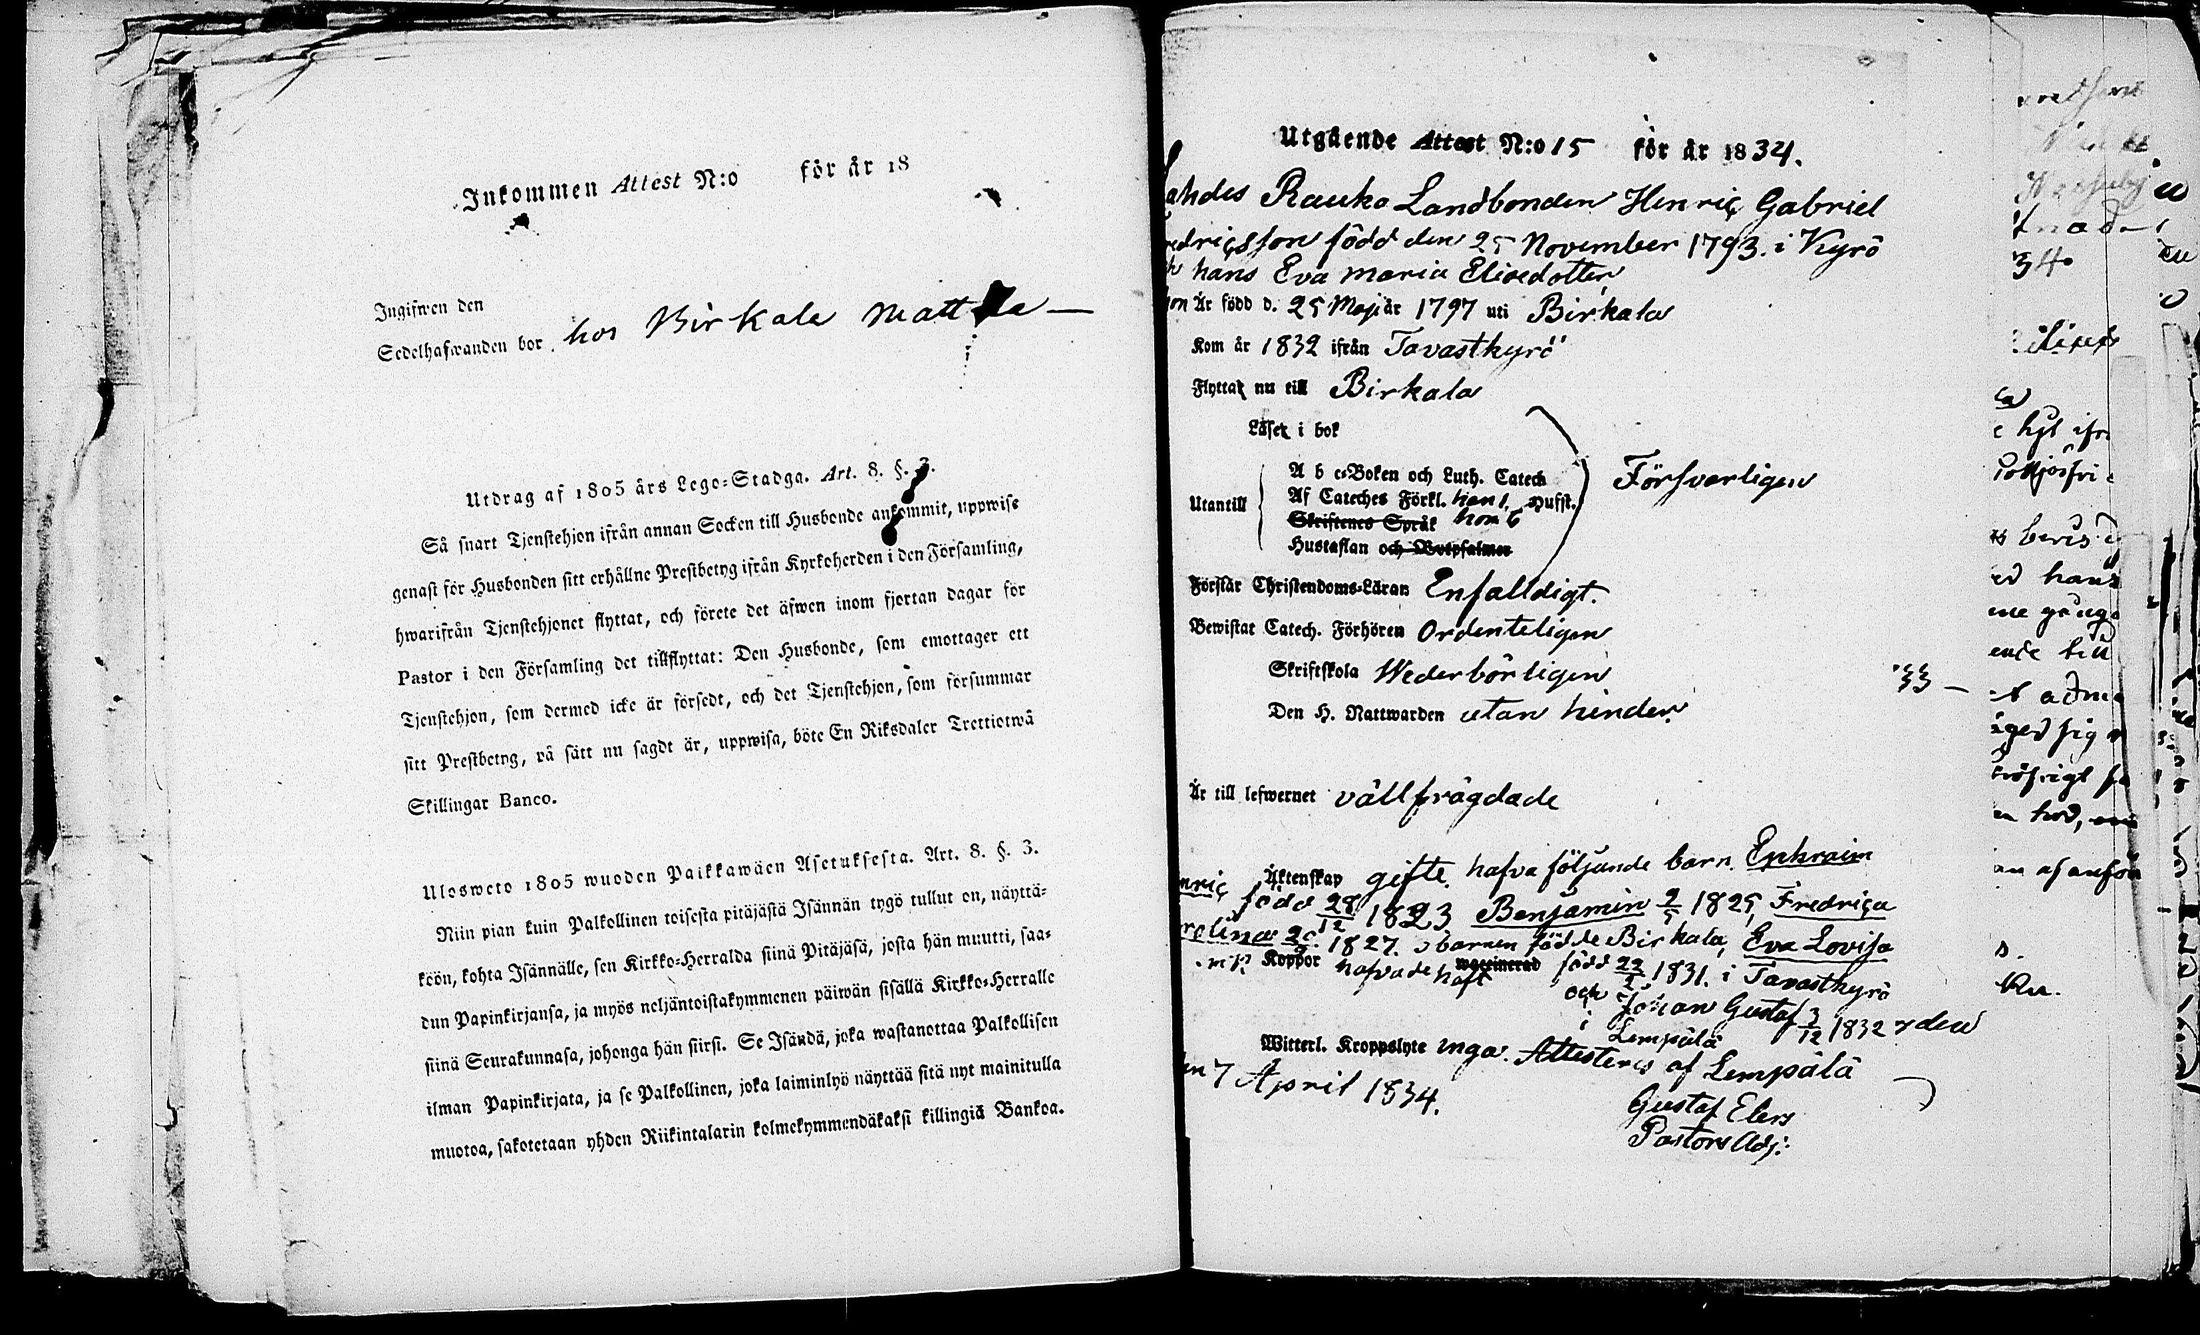 Inkommen Attest N:o för år 18
Ingifwen den
Sedelhafwanden bor hos Birkala Mattila
Utdrag af 1805 års Lego-Stadga. Art. 8. §. 3.
Så snart Tjenstehjon ifrån annan Socken till Husbonde ankommit, uppwise
genast för Husbonden sitt erhållne Prestbetyg ifrån Kyrkoherden i den Församling,
hwarifrån Tjenstehjonet flyttat, och förete det äfwen inom fjortan dagar för
Pastor i den Församling det tillflyttat: Den Husbonde, som emottager ett
Tjenstehjon, som dermed icke är försedt, och det Tjenstehjon, som försummar
sitt Prestbetyg, på sätt nu sagdt är, uppwisa, böte En Riksdaler Trettiotwå
Skillingar Banco.
Ulosweto 1805 wuoden Palkkawäen Asetuksesta. Art. 8. §. 3.
Niin pian kuin Palkollinen toisesta pitäjästä Isännän tygö tullut on, näyttä-
köön, kohta Isännälle, sen Kirkko-Herralda siinä Pitäjäsä, josta hän muutti, saa-
dun Papinkirjansa, ja myös neljäntoistakymmenen päiwän sisällä Kirkko-Herralle
siinä Seurakunnasa, johonga hän siirsi. Se Isändä, joka wastanottaa Palkollisen
ilman Papinkirjata, ja se Palkollinen, joka laiminlyö näyttää sitä nyt mainitulla
muotoa, sakotetaan yhden Riikintalarin kolmekymmendäkaksi killingiä Bankoa.
Utgående Attest N:o 15 för år 1834.
ahdes Rauko Landbonden Henric Gabriel
edricsson född den 25 November 1793. i Kyrö
hans Eva Maria Elisedotter
on Är född d. 25 Maji år 1797 uti Birkala
Kom år 1832 ifrån Tavastkyrö
Flyttar nu till Birkala
Läser i bok
Utantill
A b c-Boken och Luth. Catech
Af Cateches Förkl. han 1. Hufst.
Skriftenes Språk hon 6
Hustaflan och Botpsalmer
Försvarligen
Förstår Christendoms-Läran Enfalldigt.
Bewistat Catech. Förhören Ordenteligen
Skriftskola Wederbörligen
Den H. Nattwarden utan hinder
Är till lefwernet vällfrägdade
Äktenskap gifte. hafva följande barn. Ephraim
nric född 28/12 1823 Benjamin 2/5 1825, Fredrica
rolina 1827. 3 barnen födde Birkala, Eva Lovisa
Koppor hafva de haft waccinerad född 22/2 1831. i Tavastkyrö
och Johan Gustaf 3/12 1832
i Lempälä
Witterl. Kroppslyte inga. Attesteres af Lempälä
en 7 April 1834.
Gustaf Elers
Pastors Adj: